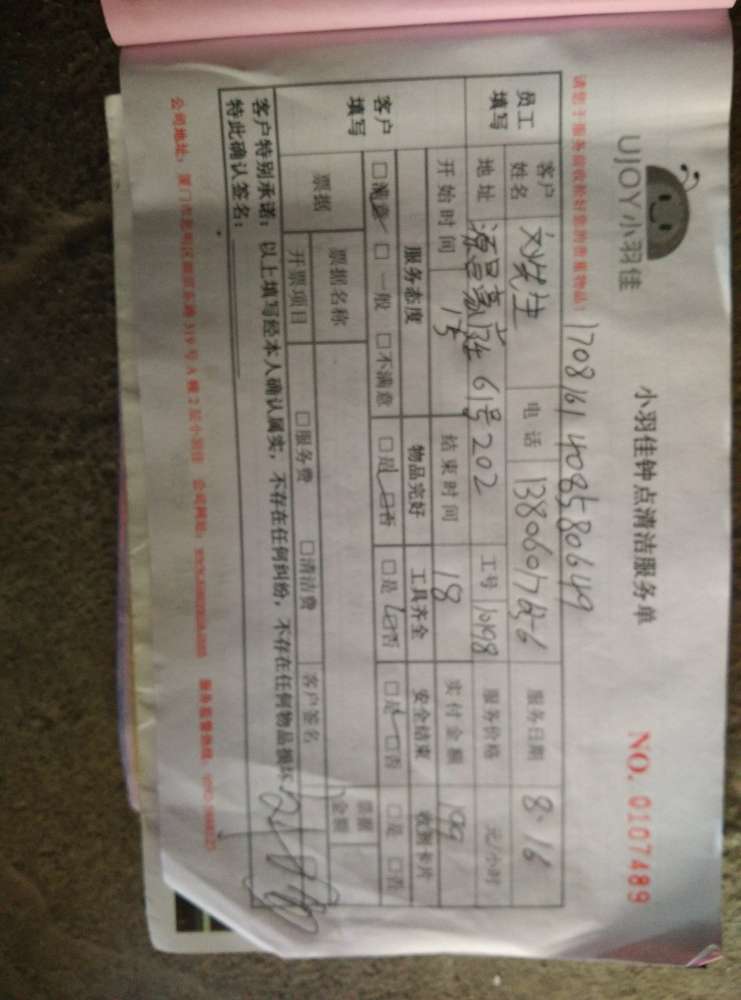 UJOY小羽佳
小羽佳钟点清洁服务单
NO. 0107489
请您于服务前收捡好您的贵重物品!
1708161408580649
员工填写
客户姓名 刘先生 电话 服务日期 8.16
地址 源昌豪庭61号202 工号 10198 服务价格 元/小时
开始时间 15 结束时间 18 实付金额 199
客户填写
服务态度 物品完好 工具齐全 安全结束 收到卡片
□满意 □一般 □不满意 □是 □否 □是 □否 □是 □否 □是 □否
票据 票据名称 票据金额
开票项目 □服务费 □清洁费 客户签名
客户特别承诺:以上填写经本人确认属实,不存在任何纠纷,不存在任何物品损坏
特此确认签名:
公司地址:厦门市思明区 319号A幢2层小羽佳 公司网址: 服务监督热线: